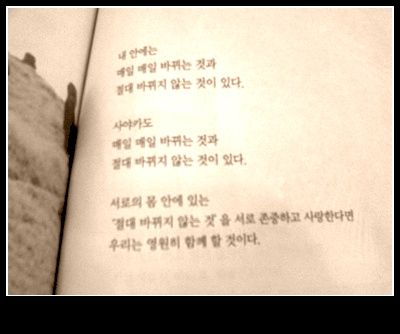 내 안에는
매일 매일 바뀌는 것과
절대 바뀌지 않는 것이 있다.
사야카도
매일 매일 바뀌는 것과
절대 바뀌지 않는 것이 있다.
서로의 몸 안에 있는
'절대 바뀌지 않는 것'을 서로 존중하고 사랑한다면
우리는 영원히 함께 할 것이다.